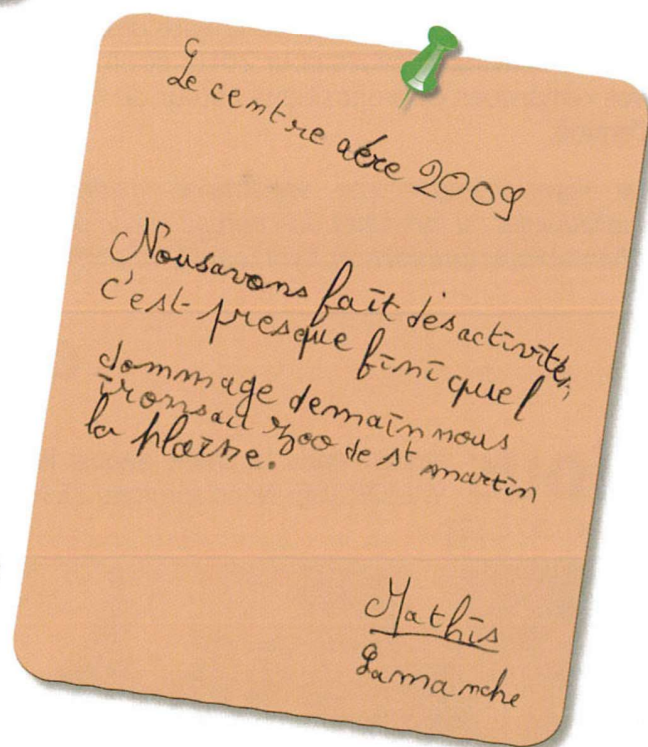 Le centre aére 2009
Nousavons fait desactivités,
c'est presque fini quel
dommage demain nous
ironsau zoo de st martin
la plaine.
Mathis
Lamanche